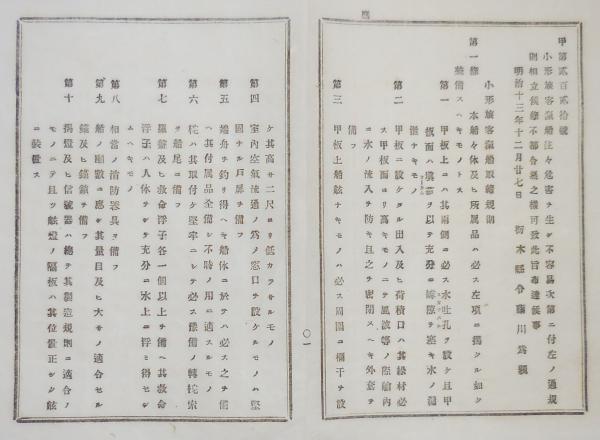 甲第貳百貳拾號
小形旅客滊船往々危害ヲ生シ不容易次第ニ付左ノ通規
則相立候條不都合無之樣可致此旨布達候事
明治十三年十二月廿七日
栃木縣令藤川爲親
小形旅客滊船取締規則
第一條 本船々体及ヒ所屬品ハ必ス左項ニ揭クル如ク
裝備スヘキモノトス
第一 甲板上ニハ其兩側ニ必ス水吐孔ヲ設ケ且甲
板面ハ ヲ以テ充分ニ 隙ヲ塞キ水ノ漏
ナキモノ
第二 甲板ニ設ケタル出入及ヒ荷積口ハ其緣材必
ス甲板面ヨリ高キモノニテ風波等ノ際艙內
ニ水ノ流入ヲ防キ且之ヲ密閉スヘキ外套ヲ
備フ
第三 甲板上船舷ナキモノハ必ス周圍ニ欄干ヲ設
ケ其高サ二尺ヨリ低カラサルモノ
第四 室內空氣流通ノ爲メ窓口ヲ設ケルモノハ堅
固ナル戸扉ヲ備フ
第五 端舟ヲ釣リ得ヘキ船体ニ於テハ必ス之ヲ備
ヘ其付属品全備シ不時ノ用ニ適スルモノ
第六 舵ハ其取付ケ堅牢ニシテ必ス豫備ノ轉舵索
ヲ船尾ニ備フ
第七 羅盤及ヒ救命浮子各一個以上ヲ備ヘ其救命
浮子ハ人体ヲシテ充分ニ水上ニ浮ミ得セシ
ムヘキモノ
第八 相當ノ消防器具ヲ備フ
第九 船ノ噸數ニ應シ其量目及ヒ大サノ適合セル
錨及ヒ錨鎖ヲ備フ
第十 揭燈及ヒ信號器ハ總テ其製造規則ニ適合ノ
モノニテ且ツ舷燈ノ隔板ハ其位置正シク舷
ニ裝置ス
〇一